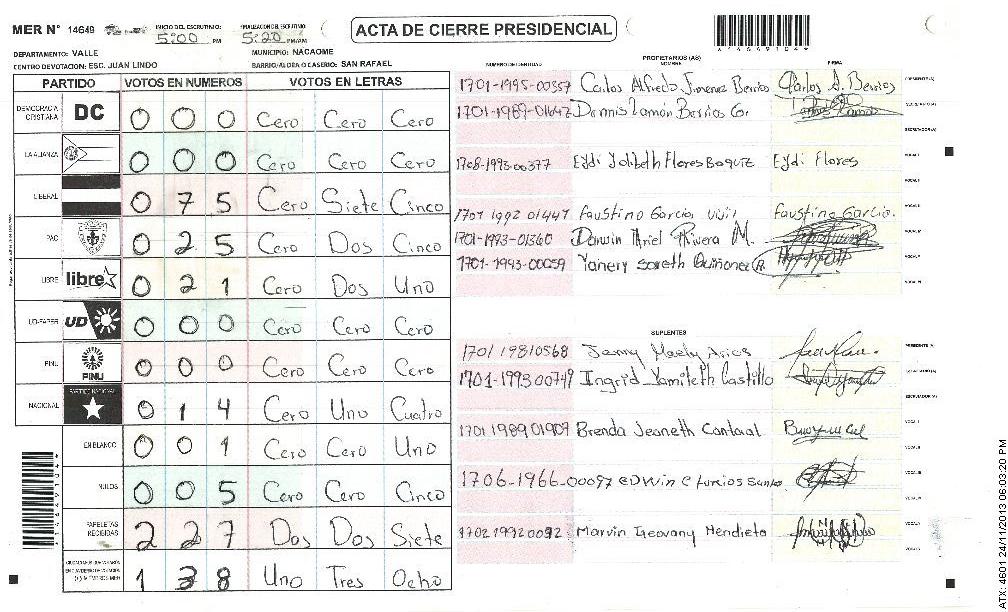 MER Nº 14649 INICIO DEL ESCRUTINIO: 5:00 PM FINALIZACION DEL ESCRUTINIO: 5:20 PM/AM
ACTA DE CIERRE PRESIDENCIAL
DEPARTAMENTO: VALLE MUNICIPIO: NACAOME
CENTRO DE VOTACION: ESC. JUAN LINDO BARRIO/ALDEA O CASERIO: SAN RAFAEL
PARTIDO VOTOS EN NUMEROS VOTOS EN LETRAS
DEMOCRACIA CRISTIANA DC 0 0 0 Cero Cero Cero
LA ALIANZA 0 0 0 Cero Cero Cero
LIBERAL 0 7 5 Cero Siete Cinco
PAC 0 2 5 Cero Dos Cinco
LIBRE libre 0 2 1 Cero Dos Uno
UD-FAPER UD 0 0 0 Cero Cero Cero
PINU PINU 0 0 0 Cero Cero Cero
NACIONAL PARTIDO NACIONAL 0 1 4 Cero Uno Cuatro
EN BLANCO 0 0 1 Cero Cero Uno
NULOS 0 0 5 Cero Cero Cinco
PAPELETAS RECIBIDAS 2 2 7 Dos Dos Siete
1 3 8 Uno Tres Ocho
PROPIETARIOS (AS)
NUMERO DE IDENTIDAD NOMBRE FIRMA
1701-1995-00357 Carlos Alfredo Jimenez Berrios Carlos A. Berrios PRESIDENTE(A)
1701-1989-01647 Dennis Ramón Berrios G.
SECRETARIO(A)
1708-1993-00377 Eydi Yolibeth Flores Eydi Flores VOCAL I
VOCAL II
1701 1992 01447 Faustino Garcia Faustino Garcia.
1701-1993-01360 Darwin Ariel Rivera M.
1701-1993-00059 Yanery Quiñonez
SUPLENTES
1701 19810568 Jenny Arios PRESIDENTE(A)
1701-1993 00749 Ingrid Yamileth Castillo
ESCRUTADOR(A)
1701 1989 01909 Brenda Jeaneth VOCAL I
1706-1966-00097 EDWin
1702 1992 0092 Marvin Geovany Mendieta
ATX: 4601 24/11/2013 06:03:20 PM